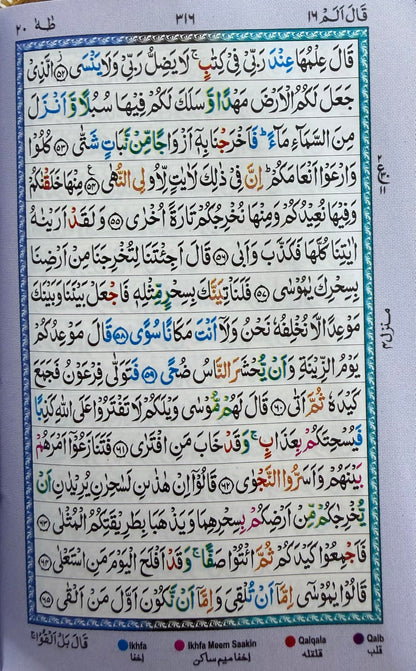 قَالَ اَلَمْ ١٦
٣١٦
طٰهٰ ٢٠
قَالَ عِلْمُهَا عِنْدَ رَبِّيْ فِيْ كِتٰبٍ ۚ لَا يَضِلُّ رَبِّيْ وَلَا يَنْسَى ﴿٥٢﴾ الَّذِيْ
جَعَلَ لَكُمُ الْاَرْضَ مَهْدًا وَّسَلَكَ لَكُمْ فِيْهَا سُبُلًا وَّاَنْزَلَ
مِنَ السَّمَآءِ مَآءً ؕ فَاَخْرَجْنَا بِهٖٓ اَزْوَاجًا مِّنْ نَّبَاتٍ شَتّٰى ﴿٥٣﴾ كُلُوْا
وَارْعَوْا اَنْعَامَكُمْ ؕ اِنَّ فِيْ ذٰلِكَ لَاٰيٰتٍ لِّاُولِي النُّهٰى ﴿٥٤﴾ مِنْهَا خَلَقْنٰكُمْ
وَفِيْهَا نُعِيْدُكُمْ وَمِنْهَا نُخْرِجُكُمْ تَارَةً اُخْرٰى ﴿٥٥﴾ وَلَقَدْ اَرَيْنٰهُ
اٰيٰتِنَا كُلَّهَا فَكَذَّبَ وَاَبٰى ﴿٥٦﴾ قَالَ اَجِئْتَنَا لِتُخْرِجَنَا مِنْ اَرْضِنَا
بِسِحْرِكَ يٰمُوْسٰى ﴿٥٧﴾ فَلَنَاْتِيَنَّكَ بِسِحْرٍ مِّثْلِهٖ فَاجْعَلْ بَيْنَنَا وَبَيْنَكَ
مَوْعِدًا لَّا نُخْلِفُهٗ نَحْنُ وَلَآ اَنْتَ مَكَانًا سُوًى ﴿٥٨﴾ قَالَ مَوْعِدُكُمْ
يَوْمُ الزِّيْنَةِ وَاَنْ يُّحْشَرَ النَّاسُ ضُحًى ﴿٥٩﴾ فَتَوَلّٰى فِرْعَوْنُ فَجَمَعَ
كَيْدَهٗ ثُمَّ اَتٰى ﴿٦٠﴾ قَالَ لَهُمْ مُّوْسٰى وَيْلَكُمْ لَا تَفْتَرُوْا عَلَى اللّٰهِ كَذِبًا
فَيُسْحِتَكُمْ بِعَذَابٍ ۚ وَقَدْ خَابَ مَنِ افْتَرٰى ﴿٦١﴾ فَتَنَازَعُوْٓا اَمْرَهُمْ
بَيْنَهُمْ وَاَسَرُّوا النَّجْوٰى ﴿٦٢﴾ قَالُوْٓا اِنْ هٰذٰنِ لَسٰحِرٰنِ يُرِيْدٰنِ اَنْ
يُّخْرِجٰكُمْ مِّنْ اَرْضِكُمْ بِسِحْرِهِمَا وَيَذْهَبَا بِطَرِيْقَتِكُمُ الْمُثْلٰى ﴿٦٣﴾
فَاَجْمِعُوْا كَيْدَكُمْ ثُمَّ ائْتُوْا صَفًّا ۚ وَقَدْ اَفْلَحَ الْيَوْمَ مَنِ اسْتَعْلٰى ﴿٦٤﴾
قَالُوْا يٰمُوْسٰٓى اِمَّآ اَنْ تُلْقِيَ وَاِمَّآ اَنْ نَّكُوْنَ اَوَّلَ مَنْ اَلْقٰى ﴿٦٥﴾
منزل ٤
قَالَ بَلْ اَلْقُوْا
Ikhfa
Ikhfa Meem Saakin
Qalqala
Qalb
اخفا
اخفا میم ساکن
قلقله
قلب